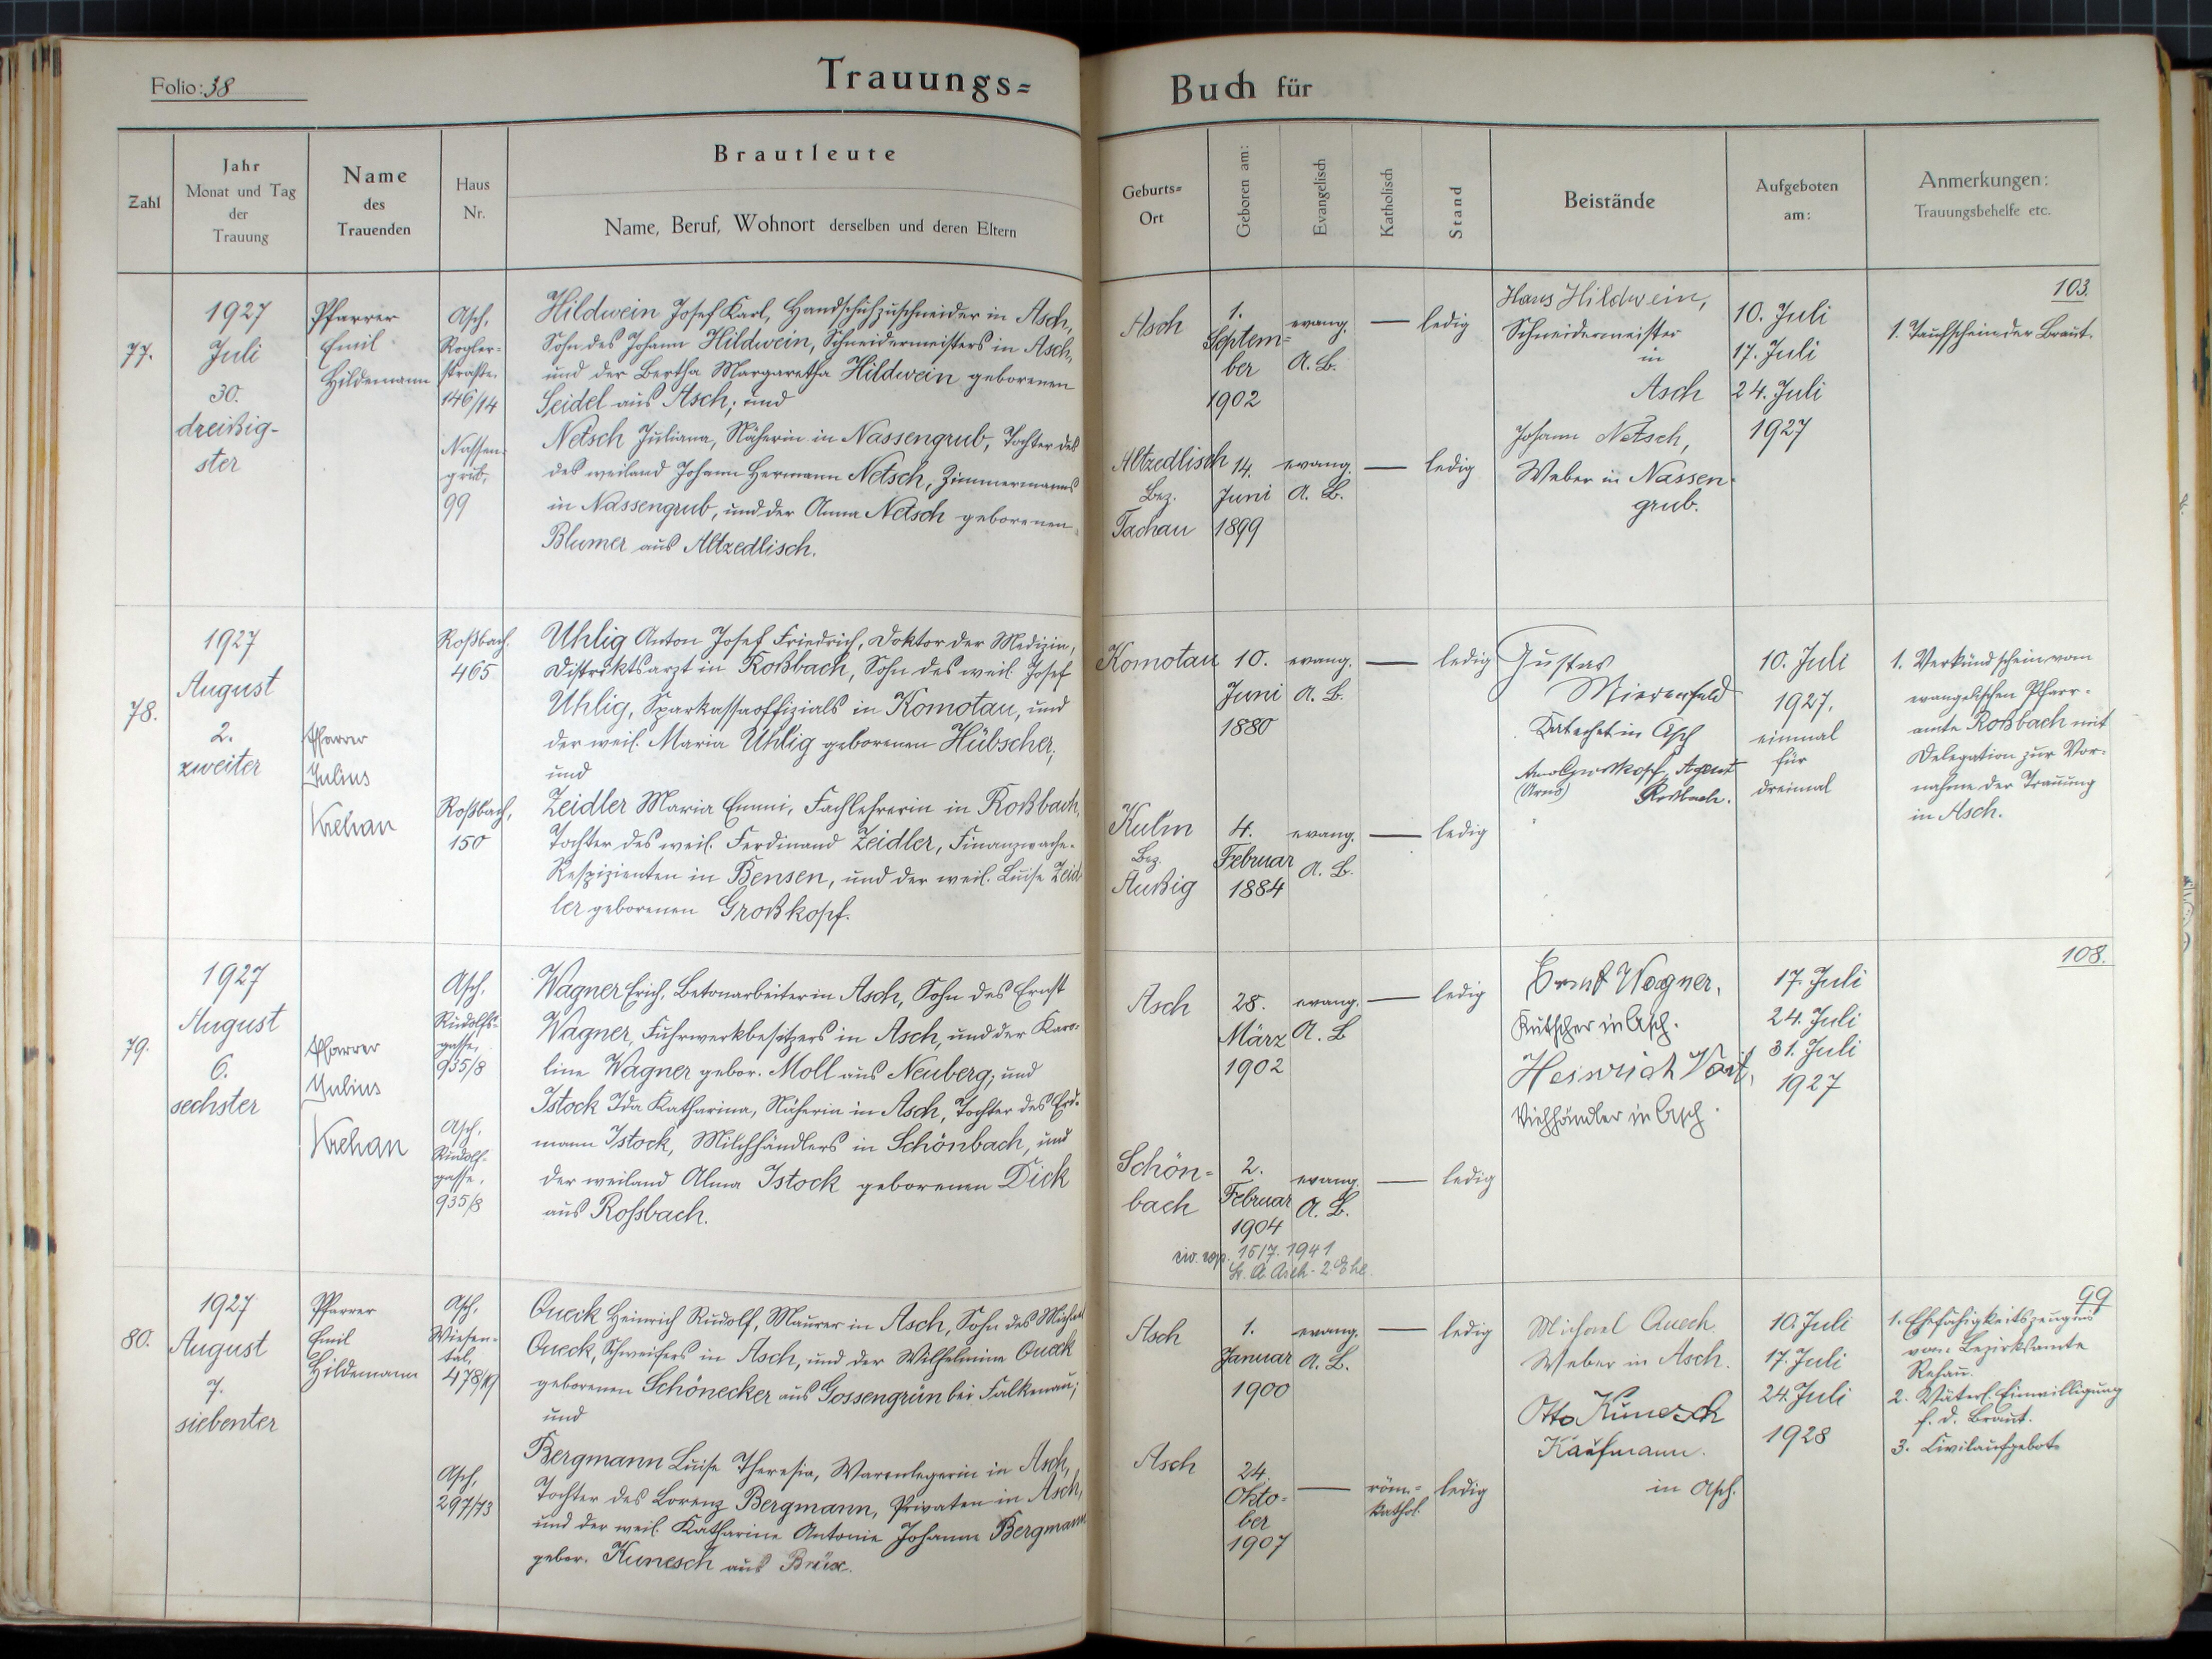 Folio: 38
Trauungs=
Buch für
Zahl
Jahr
Monat und Tag
der
Trauung
Name
des
Trauenden
Haus
Nr.
Brautleute
Name, Beruf, Wohnort derselben und deren Eltern
Geburts=
Ort
Geboren am:
Evangelisch
Katholisch
Stand
Beistände
Aufgeboten
am:
Anmerkungen:
Trauungsbehelfe etc.
77.
1927
Juli
30.
dreißig-
ster
Pfarrer
Emil
Hildemann
Asch,
Rogler-
straße.
146/14
Hildwein Josef Karl, Handschuhzuschneider in Asch,
Sohn des Johann Hildwein, Schneidermeisters in Asch,
und der Bertha Margaretha Hildwein geborenen
Seidel aus Asch; und
Nassen-
grub,
99
Netsch Juliana, Näherin in Nassengrub, Tochter des
des weiland Johann Hermann Netsch, Zimmermanns
in Nassengrub, und der Anna Netsch geborenen
Blumer aus Altzedlisch.
Asch
1.
Septem-
ber
1902
evang.
A. B.
—
ledig
Altzedlisch
Bez.
Tachau
14.
Juni
1899
evang.
A. B.
—
ledig
Hans Hildwein,
Schneidermeister
in
Asch
Johann Netsch,
Weber in Nassen-
grub.
10. Juli
17. Juli
24. Juli
1927
103.
1. Taufschein der Braut.
78.
1927
August
2.
zweiter
Pfarrer
Julius
Krehan
Roßbach,
465
Uhlig Anton Josef Friedrich, Doktor der Medizin,
Distriktsarzt in Roßbach, Sohn des weil. Josef
Uhlig, Sparkassaoffizials in Komotau, und
der weil. Maria Uhlig geborenen Hübscher;
und
Roßbach,
150
Zeidler Maria Emmi, Fachlehrerin in Roßbach,
Tochter des weil. Ferdinand Zeidler, Finanzwache-
Respizienten in Bensen, und der weil. Luise Zeid
ler geborenen Großkopf.
Komotau
10.
Juni
1880
evang.
A. B.
—
ledig
Kulm
Bez.
Außig
4.
Februar
1884
evang.
A. B.
—
ledig
Gustav
Mierenfeld
Katechet in Asch
Arno Großkopf, Agent
(Arno)
Roßbach.
10. Juli
1927,
einmal
für
dreimal
1. Verkündschein vom
evangelischen Pfarr-
amte Roßbach mit
Delegation zur Vor-
nahme der Trauung
in Asch.
79.
1927
August
6.
sechster
Pfarrer
Julius
Krehan
Asch,
Rudolfs-
gasse,
935/8
Wagner Erich, Betonarbeiter in Asch, Sohn des Ernst
Wagner, Fuhrwerkbesitzers in Asch, und der Karo-
line Wagner gebor. Moll aus Neuberg; und
Asch,
Rudolf-
gasse,
935/8
Istock Ida Katharina, Näherin in Asch, Tochter des Erd-
mann Istock, Milchhändlers in Schönbach, und
der weiland Alma Istock geborenen Dick
aus Rossbach.
Asch
28.
März
1902
evang.
A. B
—
ledig
Schön-
bach
2.
Februar
1904
evang.
A. B.
—
ledig
15/7. 1941
St. A Asch - 2. Ehe
Ernst Wagner,
Kutscher in Asch.
Heinrich Voit,
Viehhändler in Asch.
17. Juli
24. Juli
31. Juli
1927
108.
80.
1927
August
7.
siebenter
Pfarrer
Emil
Hildemann
Asch,
Wiesen-
tal,
478/19
Queck Heinrich Rudolf, Maurer in Asch, Sohn des Michael
Queck, Schweifers in Asch, und der Wilhelmina Queck
geborenen Schönecker aus Gossengrün bei Falkenau;
und
Asch,
297/73
Bergmann Luise Theresia, Warenlegerin in Asch,
Tochter des Lorenz Bergmann, Privaten in Asch,
und der weil. Katharine Antonie Johanna Bergmann
gebor. Kunesch aus Brüx.
Asch
1.
Januar
1900
evang.
A. B.
—
ledig
Asch
24.
Okto-
ber
1907
—
röm.-
kathol.
ledig
Michael Queck.
Weber in Asch.
Otto Kunesch
Kaufmann.
in Asch.
10. Juli
17. Juli
24. Juli
1928
99
1. Ehefähigkeitszeugnis
vom Bezirksamte
Rehau.
2. Väterl. Einwilligung
f. d. Braut.
3. Civilaufgebot.